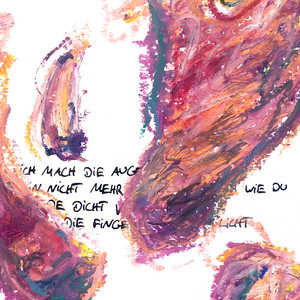 ICH MACH DIE AUGE
NICHT MEHR WIE DU
DICHT
DIE FINGE LICHT